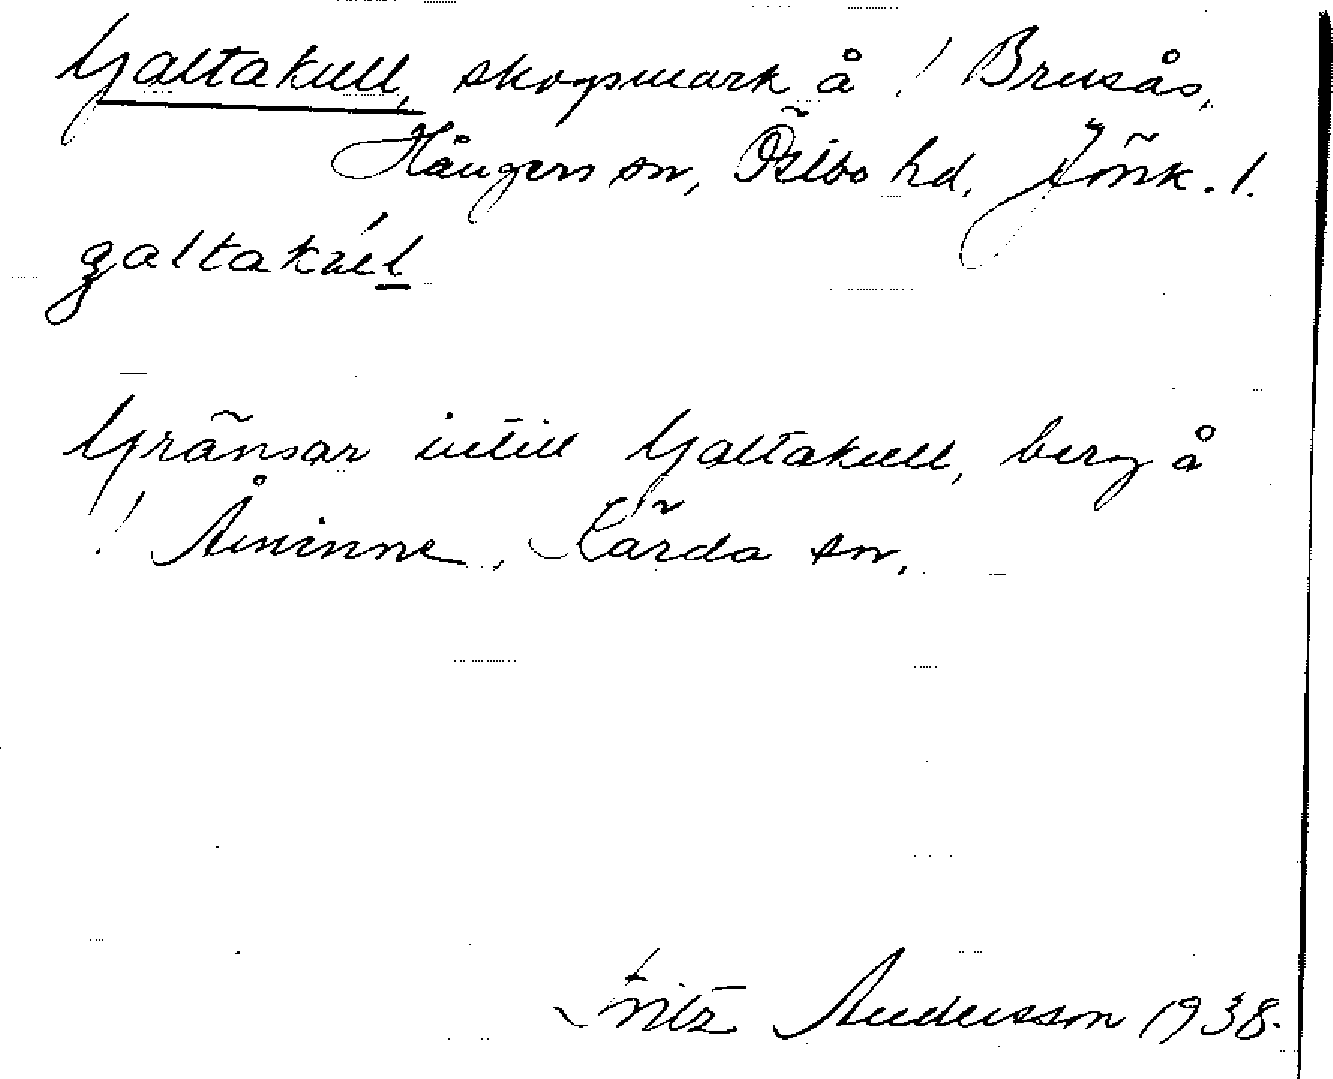 Galtakull, skogsmark å ! Brusås,
Hångers sn, Östbo hd, Jönk. l.
galtakúl
Gränsar intill Galtakull, berg å
! Åminne, Kärda sn.
Fritz Andersson 1938.